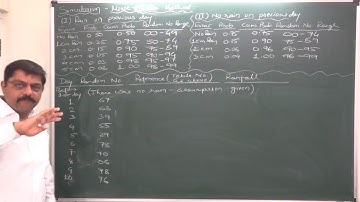 Simulation -
(I) Rain on previous day
(II) No rain on previous day
Event Prob Cum Prob Random No Range
No Rain 0.50 0.50 00-49
1cm Rain 0.25 0.75 50-74
0.15 0.90 75-89
0.05 0.95 90-94
0.03 0.98 95-97
0.02 1.00 98-99
Event Prob Cum Prob Random No Range
No Rain 0.75 0.75 00-74
1cm Rain 0.15 0.90 75-89
2cm 0.06 0.96 90-95
3cm 0.04 1.00 96-99
Day Random No Reference (Table No as above) Rainfall
1st day (There was no rain - assumption given)
1 67
2 63
3 39
4 55
5 29
6 78
7 70
8 06
9 78
10 76